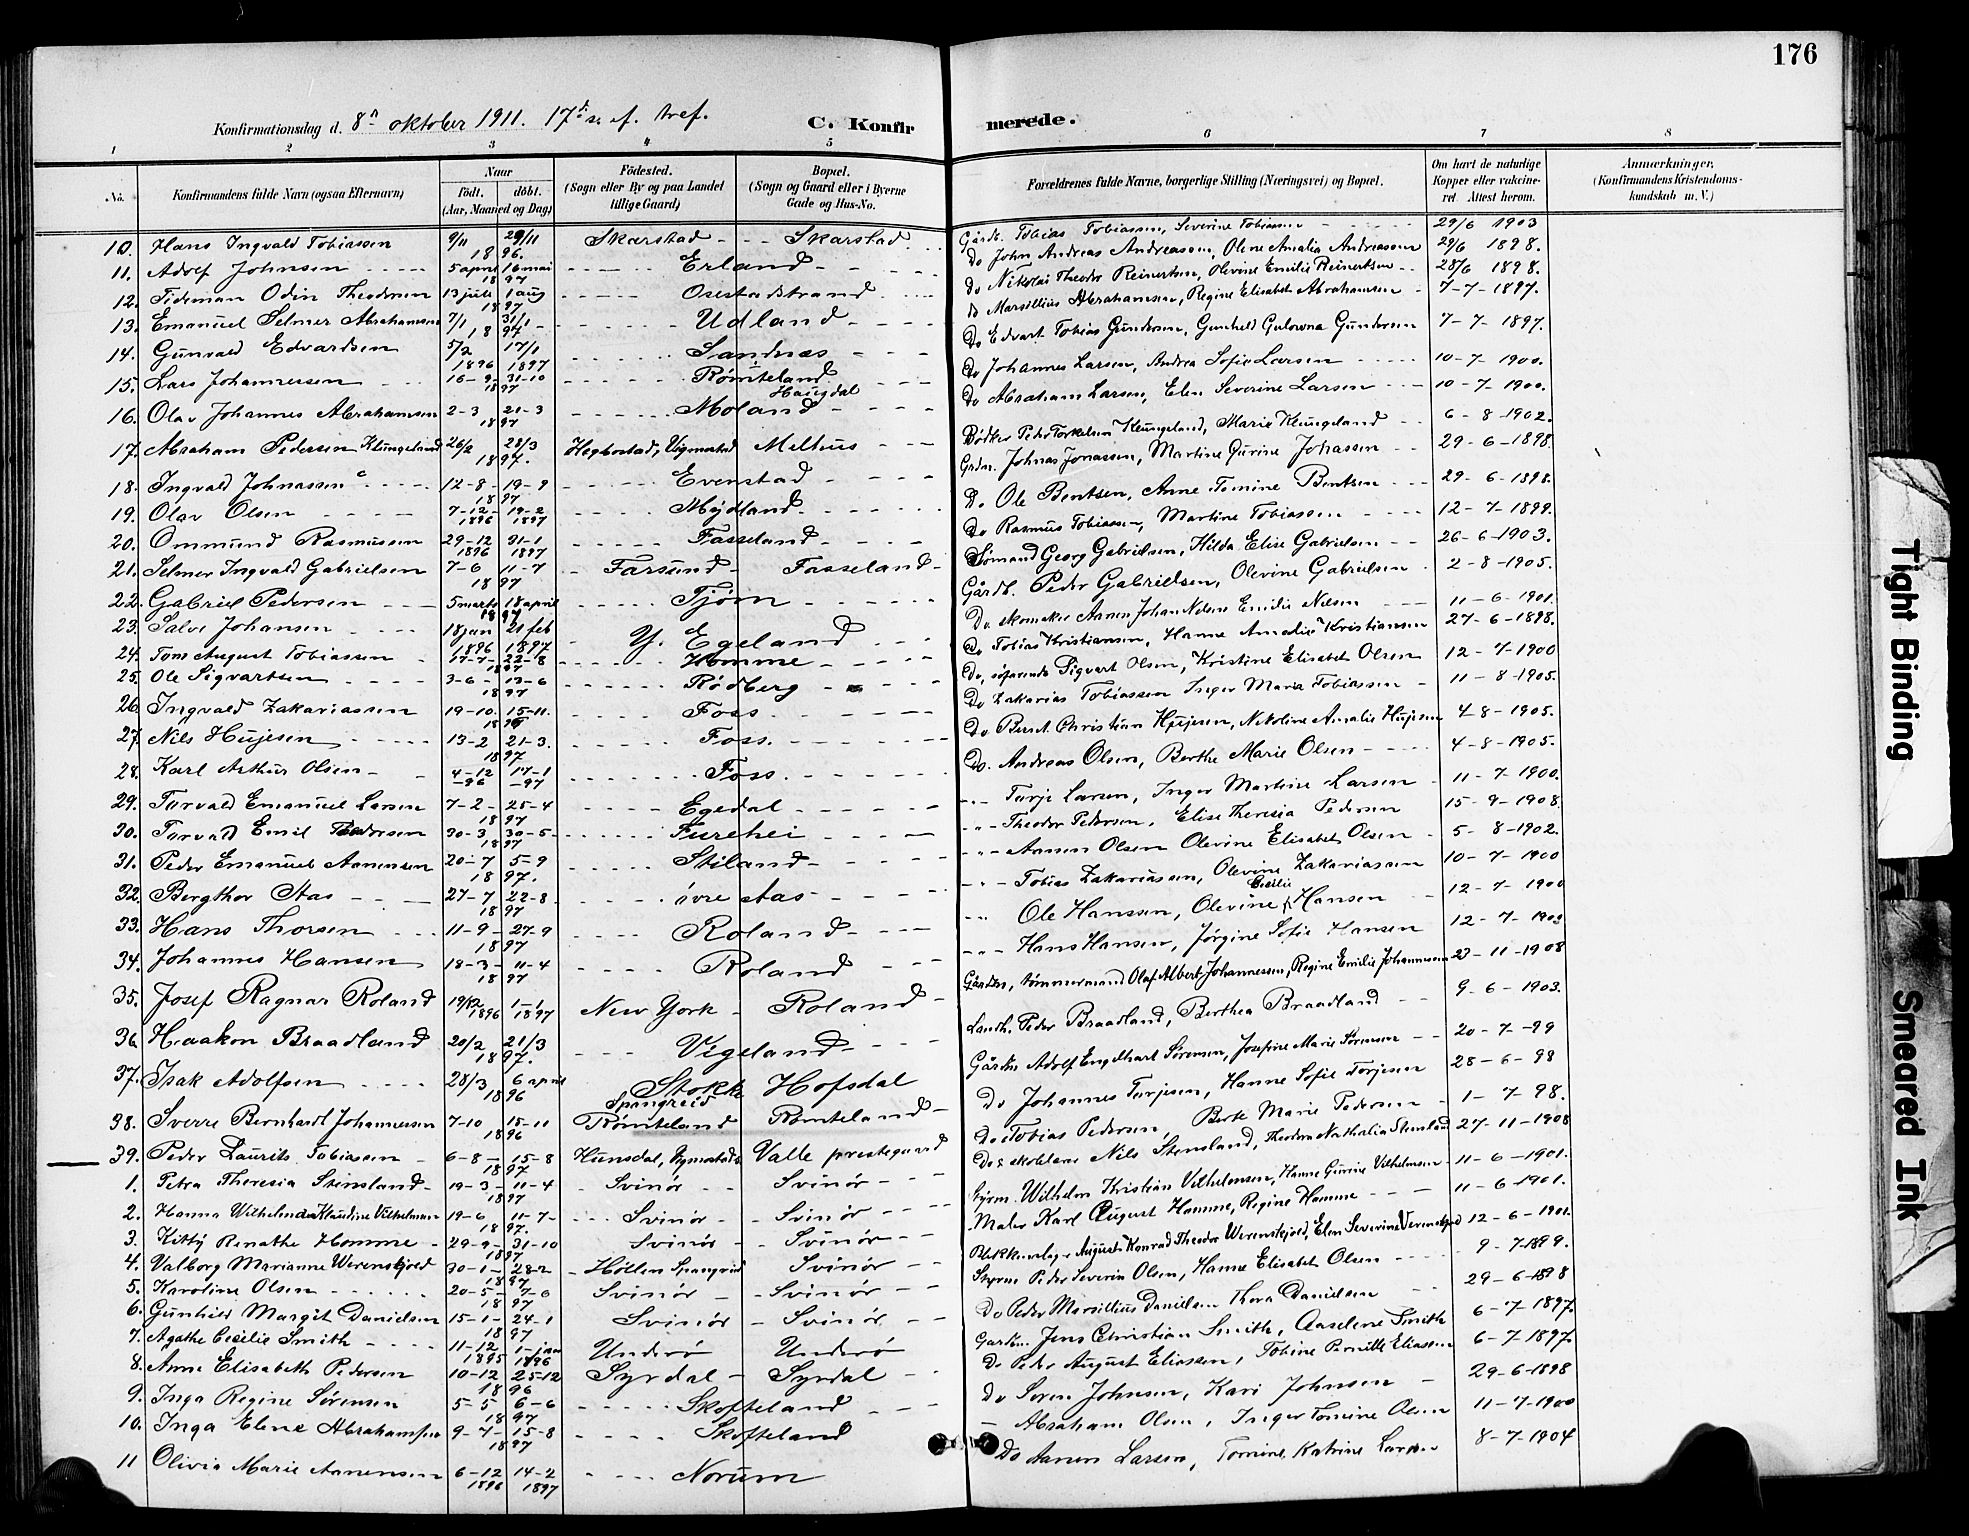 176
Konfirmationsdag d. 8n oktober 1911. 17d s. e. tref. C. Konfirmerede.
1 2 3 4 5 6 7 8
No. Konfirmandens fulde Navn (ogsaa Efternavn) Naar födt. döbt. (Aar, Maaned og Dag) Födested. (Sogn eller By og paa Landet tillige Gaard) Bopæl. (Sogn og Gaard eller i Byerne Gade og Hus-No. Forældrenes fulde Navne, borgerlige Stilling (Næringsvei) og Bopæl. Om havt de naturlige Kopper eller vaccineret. Attest herom. Anmærkninger, (Konfirmandens Kristendomskundskab m. V.)
10. Hans Ingvald Tobiassen 9/11 29/11 1896. Skarstad - - - Skarstad Gårdb. Tobias Tobiassen, Severine Tobiassen 29/6 1903
11. Adolf Johnsen 5 april 16 mai 1897 Erland Do John Andreas Andreassen, Olene Amalia Andreassen 29/6 1898.
12. Tideman Odin Theodorsen 13 juli 1 aug 1897 Osestadstrand Do Nikolai Theodor Reinertsen, Olevine Emilie Reinertsen 28/6 1898.
13. Emanuel Selmer Abrahamsen 7/1 31/1 1897 Udland Do Marsillius Abrahamsen, Regine Elisabet Abrahamsen 7-7-1897.
14. Gunvald Edvardsen 5/2 1896 17/1 1897 Sandnæs Do Edvart Tobias Gundersen, Gunhild Gulowna Gundersen 7-7-1897.
15. Lars Johannessen 16-9 31-10 1897 Rømteland Haugdal Do Johannes Larsen, Andrea Sofie Larsen 10-7-1900.
16. Olav Johannes Abrahamsen 2-3 21-3 1897 Moland Do Abraham Larsen, Elen Severine Larsen 10-7-1900.
17. Abraham Pedersen Klungeland 26/2 28/3 1897. Hegbostad, Vigmostad Melhus Bødker Peder Torkelsen Klungeland, Marie Klungeland 6-8-1902.
18. Ingvald Johnassen 12-8-19-9 1897 Evenstad Grdm. Johnas Jonassen, Martine Gurine Johassen 29-6-1898.
19. Olav Olsen 7-12-1896 19-2 1897 Mydland Do Ole Bentsen, Anne Tomine Bentsen 29-6-1898.
20. Ommund Rasmussen 29-12 1896 31-1 1897 Fasseland Do Rasmus Tobiassen, Martine Tobiassen 12-7-1899.
21. Selmer Ingvald Gabrielsen 7-6 11-7 1897 Farsund - Fasseland Sömand Georg Gabrielsen, Hilda Elise Gabrielsen 26-6-1903.
22. Gabriel Pedersen 5 marts 18 april 1897 Tjöm Gårdb. Peder Gabrielsen, Olevine Gabrielsen 2-8-1905.
23. Salve Johansen 18 jan 1896 21 feb 1897 Y. Egeland Do skomaker Aanen Johan Nelsen Emilie Nilsen 11-6-1901.
24. Tom August Tobiassen 17-7-22-8 1897 Homme Do Tobias Kristiansen, Hanne Amalie Kristiansen 27-6-1898.
25. Ole Sigvartsen 3-6-13-6 1897 Rödberg Do, söfarende Sigvart Olsen, Kristine Elisabet Olsen 12-7-1900
26. Ingvald Zakariassen 19-10. 15-11. 1896 Foss Do Zakarias Tobiassen Inger Maria Tobiassen 11-8-1905.
27. Nils Hujesen 13-2 21-3. 1897 Foss. Do Bernt Christian Hujesen, Nikoline Amalie Hujesen 4-8-1905.
28. Karl Arthur Olsen 4-12-96 17-1-97 Foss. Do. Andreas Olsen, Berthe Marie Olsen 4-8-1905.
29. Torvald Emanuel Larsen 7-2-25-4 1897 Egedal Terje Larsen, Inger Martine Larsen 11-7-1900.
30. Torvald Emil Pedersen 30-3, 30-5- 1897 Furehei Theodor Pedersen, Elise Theresia Pedersen 15-9-1908.
31. Peder Emanuel Aanensen 20-7 5-9 1897. Stiland Aanen Olsen Olevine Elisabet Olsen 5-8-1902.
32. Bergthor Aas 27-7 22-8 1897 övre aas Tobias Zakariassen, Olevine Zakariassen 10-7-1900
33. Hans Thorsen 11-9-27-9 1897 Roland Ole Hanssen, Olevine Cecilie Hansen 12-7-1900
34. Johannes Hansen 18-3-11-4 1897 Roland Hans Hansen, Jörgine Sofie Hansen 12-7-1903
35. Josef Ragnar Roland 19/12 1896 1-1 1897 New York - Roland Gårdbr., tömmermand Olaf Albert Johannessen, Regine Emilie Johannessen 23-11-1908
36. Haakon Braadland 20/2 21/3 1897. Vigeland Landh. Peder Braadland, Berthea Braadland 9-6-1903.
37. Isak Adolfsen 28/3 6 april 1896 Stokke Hofsdal Gårdbr Adolf Engelhart Sörensen, Josefine Marie Sörensen 20-7-99
38. Sverre Bernhard Johannessen 7-10 15-11 1896 Spangreid Römteland Römteland Do Johannes Terjesen, Hanne Sofie Terjesen 28-6-98
39. Peder Laurits Tobiassen 6-8-15-8 1897 Hunsdal, Vigmostad Valle prestegaard Do Tobias Pedersen, Berte Marie Pedersen 1-7-98.
1. Petra Theresia Stensland 19-3-11-4 1897 Svinör Svinör Do & skolelærer Nils Stensland, Theodora Nathalia Stensland 27-11-1908
2. Hanna Wilhelmine Klaudine Vilhelmsen 19-6 11-7- 1897. Svinör Svinör Styrm. Wilhelm Kristian Vilhelmsen, Hanne Gurine Vilhelmsen 11-6-1901.
3. Kitty Renathe Homme 29-9-31-10 1897 Svinör Svinör Maler Karl August Homme, Regine Homme 11-6-1901.
4. Valborg Marianne Werenskjold 30-1-28-2 1897 Höllen Spangreid Svinör Blikkenslager August Konrad Theodor Werenskjold, Elen Severine Verenskjold 12-6-1901.
5. Karoline Olsen 20-5-7-6 1897 Svinör Svinör Styrm Peder Severin Olsen, Hanne Elisabet Olsen 9-7-1899.
6. Gunhild Margit Danielsen 15-1-24-1 1897 Svinör Svinör Do Peder Marsillius Danielsen Thora Danielsen 29-6-1898
7. Agathe Cecilie Smith 11-12 1895 1-jan 1896 Underö Underö Gårdbr. Jens Christian Smith, Aaselene Smith 6-7-1897.
8. Anne Elisabeth Pedersen 10-12 25-12 1896 Syrdal - Syrdal Do Peder August Eliassen, Tobine Pernille Eliassen 6-7-1897.
9. Inga Regine Sörensen 5-5 6-6 1897 Skofteland Do Soren Johnsen, Kari Johnsen 29-6-1898
10. Inga Elene Abrahamsen 9-7-15-8 1897 Skofteland Abraham Olsen, Inger Tomine Olsen 11-7-1900
11 Olivia Marie Aanensen 6-12 1896 14-2 1897 Norum Do Aanen Larsen, Tomine Katrine Larsen 8-7-1904
Tight Binding
Smeared Ink